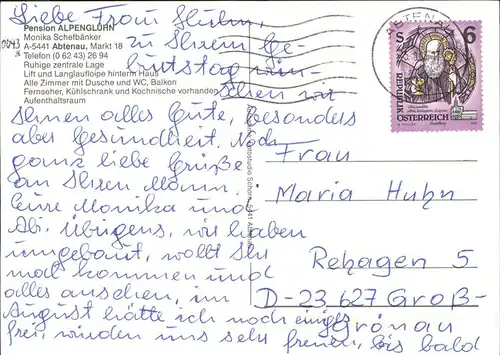 Liebe Frau Huhn,
zu Ihrem Ge-
burtstag wün-
schen wir
Ihnen alles Gute, besonders
aber Gesundheit. Noch
ganz liebe Grüße
an Ihren Mann.
Eure Monika und
Adi. Übrigens, wir haben
umgebaut, wollt Ihr
mal kommen und
alles ansehen, im
August hätte ich noch einiges
frei, würden uns sehr freuen, bis bald
Pension ALPENGLÜHN
Monika Schefbänker
A-5441 Abtenau, Markt 18
Telefon (0 62 43) 26 94
Ruhige zentrale Lage
Lift und Langlaufloipe hinterm Haus
Alle Zimmer mit Dusche und WC, Balkon
Fernseher, Kühlschrank und Kochnische vorhanden
Aufenthaltsraum
0043
ABTENAU
S 6
REPUBLIK
ÖSTERREICH
5441 Abtenau
Frau
Maria Huhn
Rehagen 5
D-23627 Groß-
Grönau